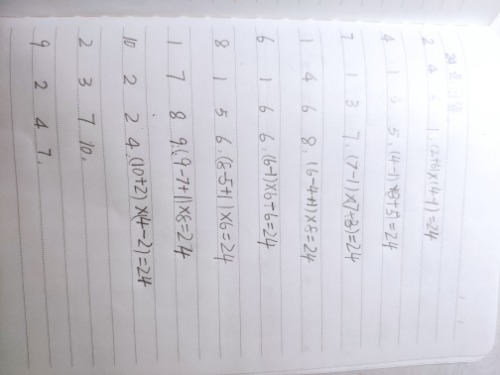 2 4 1. (2+4)×(4-1)=24
4 1 5. (4-1)×(3+5)=24
7 1 3 7. (7-1)×(7-3)=24
1 4 6 8. (6-4+1)×8=24
6 1 6 6. (6-1)×6-6=24
8 1 5 6. (8-5+1)×6=24
1 7 8 9. (9-7+1)×8=24
10 2 2 4. (10+2)×(4-2)=24
2 3 7 10.
9 2 4 7.